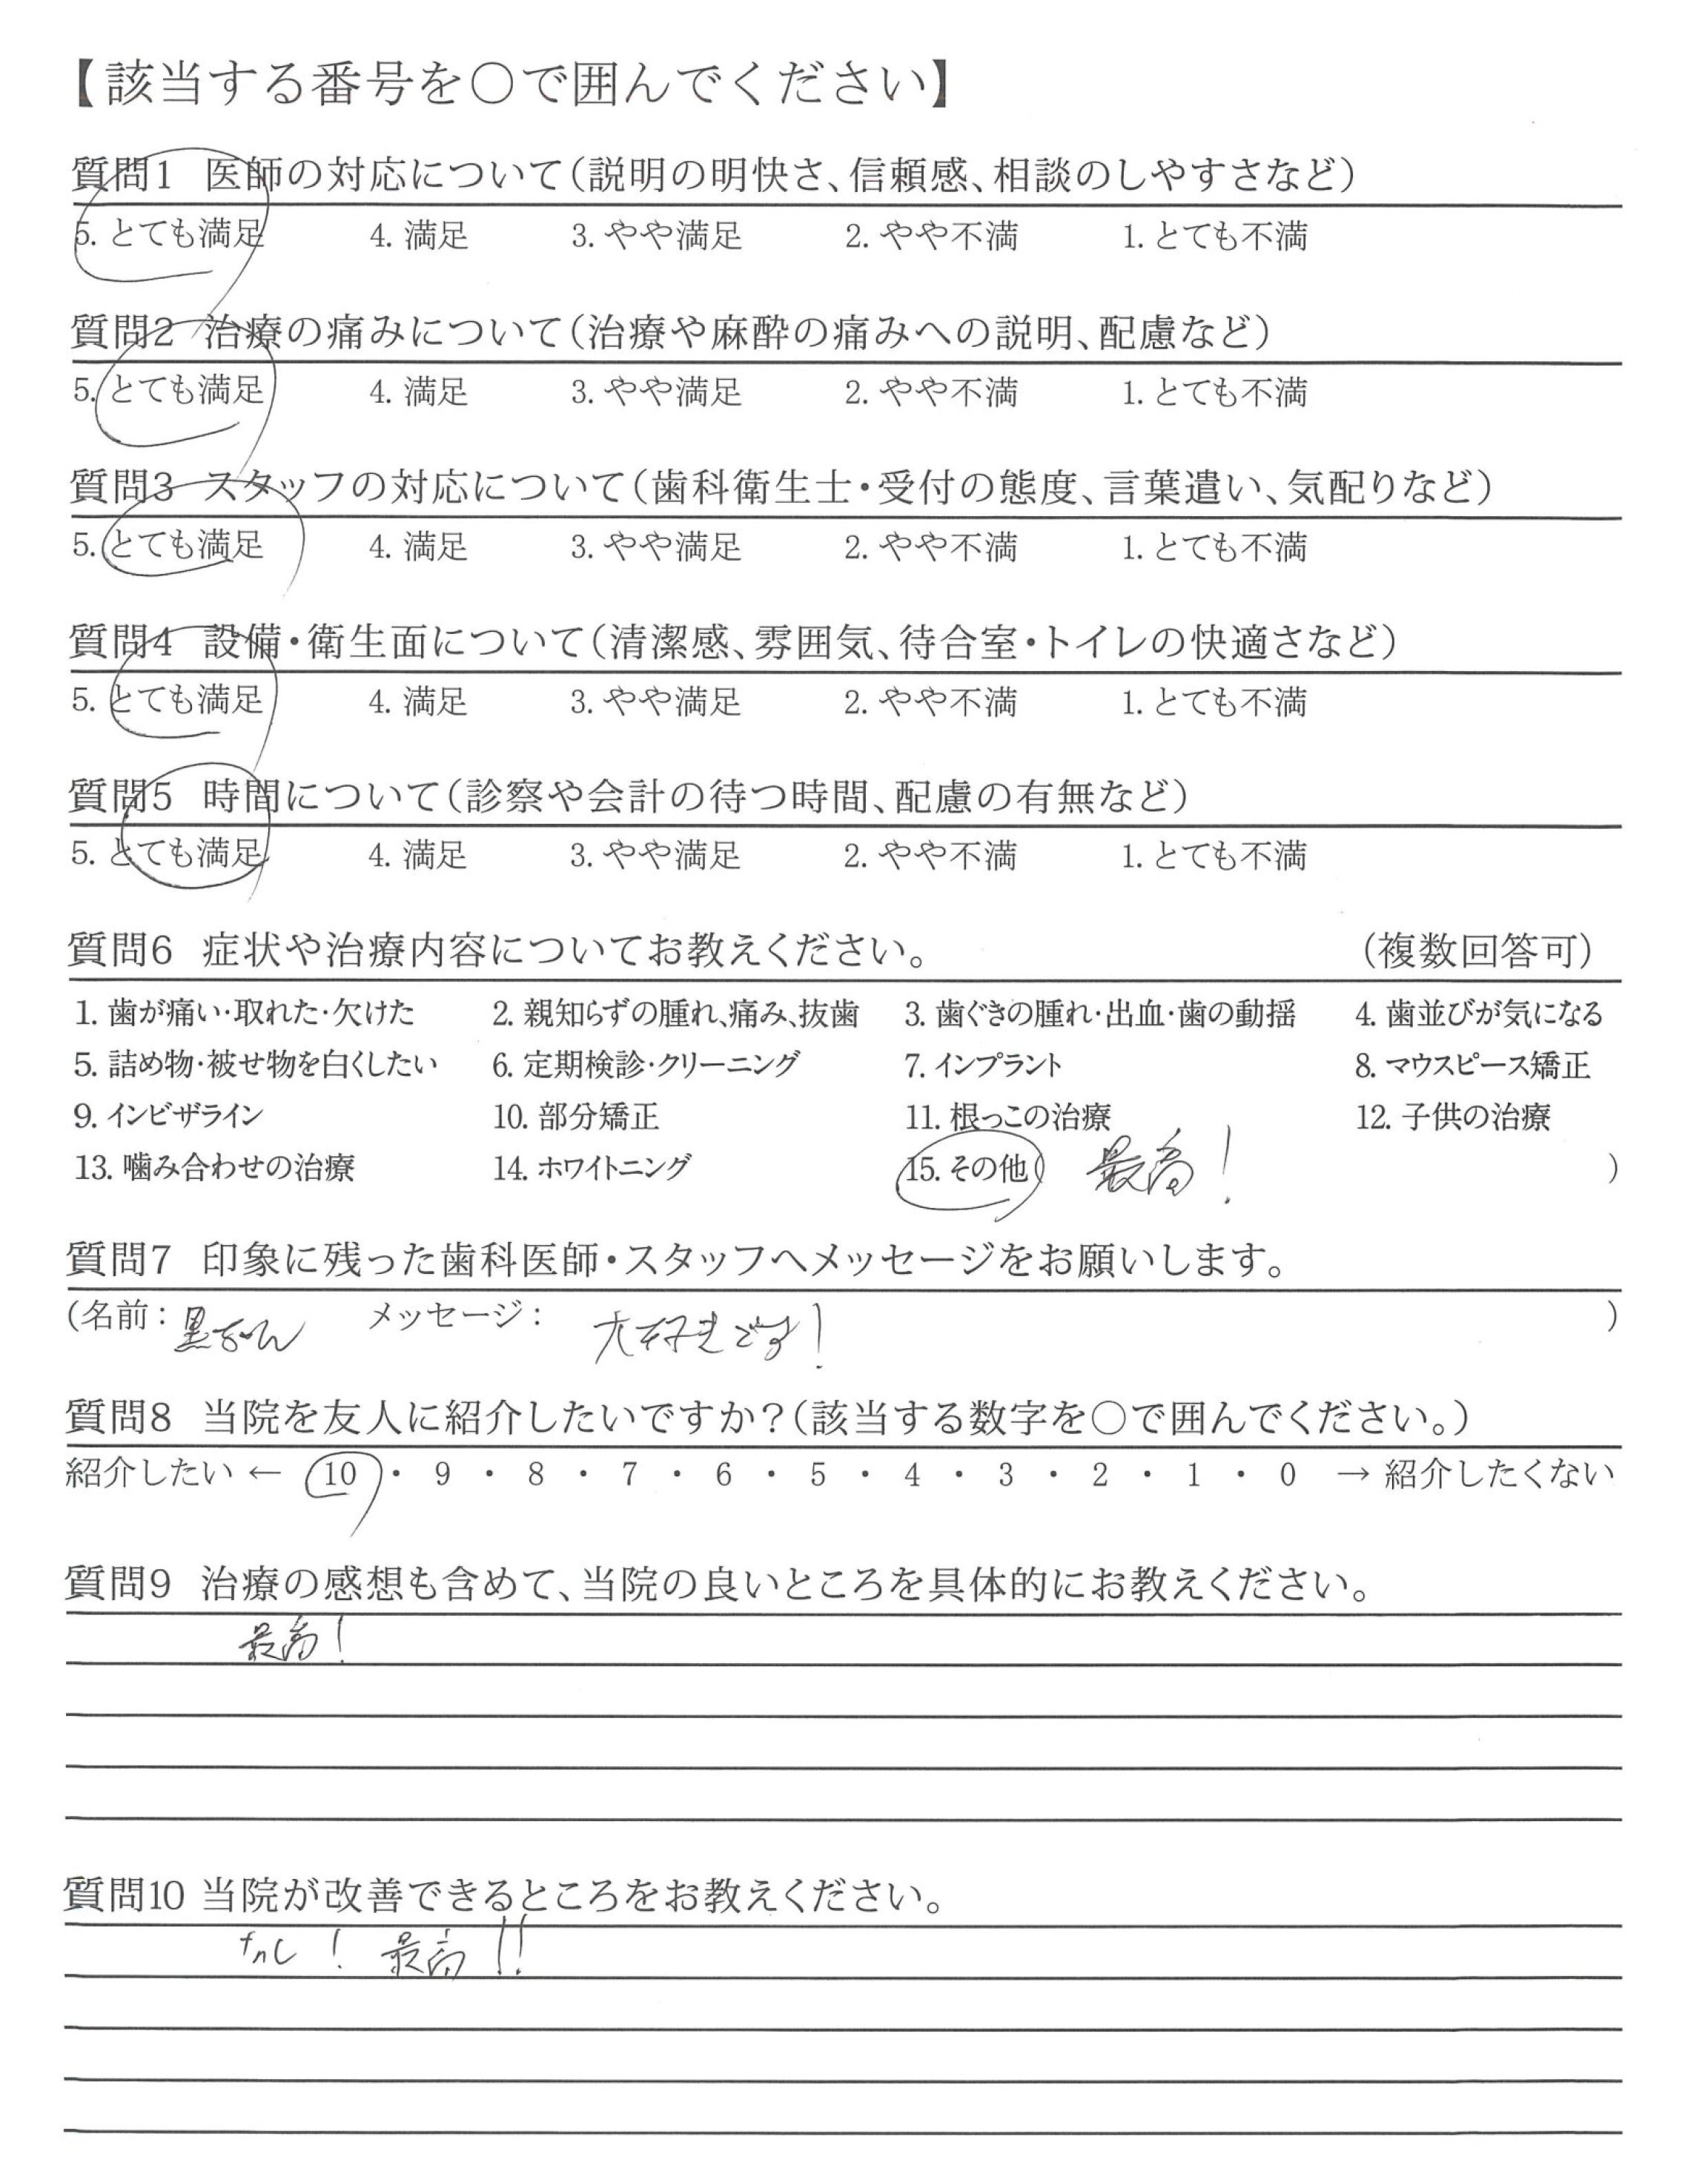 【該当する番号を○で囲んでください】
質問1 医師の対応について(説明の明快さ、信頼感、相談のしやすさなど)
5. とても満足 4. 満足 3. やや満足 2. やや不満 1. とても不満
質問2 治療の痛みについて(治療や麻酔の痛みへの説明、配慮など)
5. とても満足 4. 満足 3. やや満足 2. やや不満 1. とても不満
質問3 スタッフの対応について(歯科衛生士・受付の態度、言葉遣い、気配りなど)
5. とても満足 4. 満足 3. やや満足 2. やや不満 1. とても不満
質問4 設備・衛生面について(清潔感、雰囲気、待合室・トイレの快適さなど)
5. とても満足 4. 満足 3. やや満足 2. やや不満 1. とても不満
質問5 時間について(診察や会計の待つ時間、配慮の有無など)
5. とても満足 4. 満足 3. やや満足 2. やや不満 1. とても不満
質問6 症状や治療内容についてお教えください。 (複数回答可)
1. 歯が痛い・取れた・欠けた 2. 親知らずの腫れ、痛み、抜歯 3. 歯ぐきの腫れ・出血・歯の動揺 4. 歯並びが気になる
5. 詰め物・被せ物を白くしたい 6. 定期検診・クリーニング 7. インプラント 8. マウスピース矯正
9. インビザライン 10. 部分矯正 11. 根っこの治療 12. 子供の治療
13. 噛み合わせの治療 14. ホワイトニング 15. その他( 最高! )
質問7 印象に残った歯科医師・スタッフへメッセージをお願いします。
(名前: 黒ちゃん メッセージ: 大好きです! )
質問8 当院を友人に紹介したいですか?(該当する数字を○で囲んでください。)
紹介したい ← 10 ・ 9 ・ 8 ・ 7 ・ 6 ・ 5 ・ 4 ・ 3 ・ 2 ・ 1 ・ 0 → 紹介したくない
質問9 治療の感想も含めて、当院の良いところを具体的にお教えください。
最高!
質問10 当院が改善できるところをお教えください。
なし! 最高!!